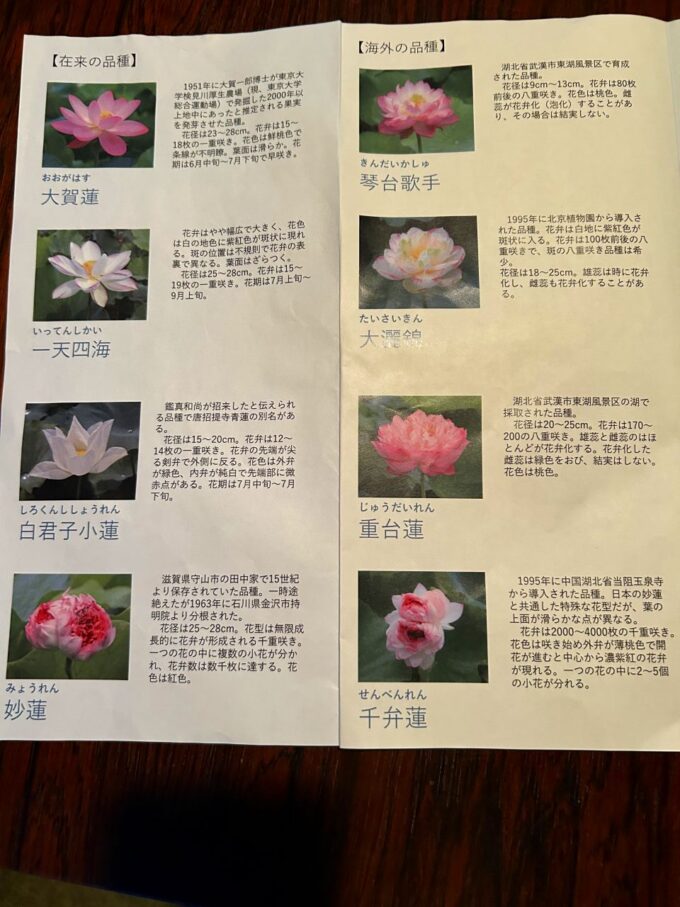 【在来の品種】
1951年に大賀一郎博士が東京大
学検見川厚生農場（現、東京大学
総合運動場）で発掘した2000年以
上地中にあったと推定される果実
を発芽させた品種。
花径は23〜28cm。花弁は15〜
18枚の一重咲き。花色は鮮桃色で
条線が不明瞭。葉面は滑らか。花
期は6月中旬〜7月下旬で早咲き。
おおがはす
大賀蓮
花弁はやや幅広で大きく、花色
は白の地色に紫紅色が斑状に現れ
る。斑の位置は不規則で花弁の表
裏で異なる。葉面はざらつく。
花径は25〜28cm。花弁は15〜
19枚の一重咲き。花期は7月上旬〜
9月上旬。
いってんしかい
一天四海
鑑真和尚が招来したと伝えられ
る品種で唐招提寺青蓮の別名があ
る。
花径は15〜20cm。花弁は12〜
14枚の一重咲き。花弁の先端が尖
る剣弁で外側に反る。花色は外弁
が緑色、内弁が純白で先端部に微
赤点がある。花期は7月中旬〜7月
下旬。
しろくんししょうれん
白君子小蓮
滋賀県守山市の田中家で15世紀
より保存されていた品種。一時途
絶えたが1963年に石川県金沢市持
明院より分根された。
花径は25〜28cm。花型は無限成
長的に花弁が形成される千重咲き。
一つの花の中に複数の小花が分か
れ、花弁数は数千枚に達する。花
色は紅色。
みょうれん
妙蓮
【海外の品種】
湖北省武漢市東湖風景区で育成
された品種。
花径は9cm〜13cm。花弁は80枚
前後の八重咲き。花色は桃色。雌
蕊が花弁化（泡化）することがあ
り、その場合は結実しない。
きんだいかしゅ
琴台歌手
1995年に北京植物園から導入さ
れた品種。花弁は白地に紫紅色が
斑状に入る。花弁は100枚前後の八
重咲きで、斑の八重咲き品種は希
少。
花径は18〜25cm。雄蕊は時に花弁
化し、雌蕊も花弁化することがあ
る。
たいさいきん
大灑錦
湖北省武漢市東湖風景区の湖で
採取された品種。
花径は20〜25cm。花弁は170〜
200の八重咲き。雄蕊と雌蕊のはほ
とんどが花弁化する。花弁化した
雌蕊は緑色をおび、結実はしない。
花色は桃色。
じゅうだいれん
重台蓮
1995年に中国湖北省当阻玉泉寺
から導入された品種。日本の妙蓮
と共通した特殊な花型だが、葉の
上面が滑らかな点が異なる。
花弁は2000〜4000枚の千重咲き。
花色は咲き始め外弁が薄桃色で開
花が進むと中心から濃紫紅の花弁
が現れる。一つの花の中に2〜5個
の小花が分れる。
せんべんれん
千弁蓮